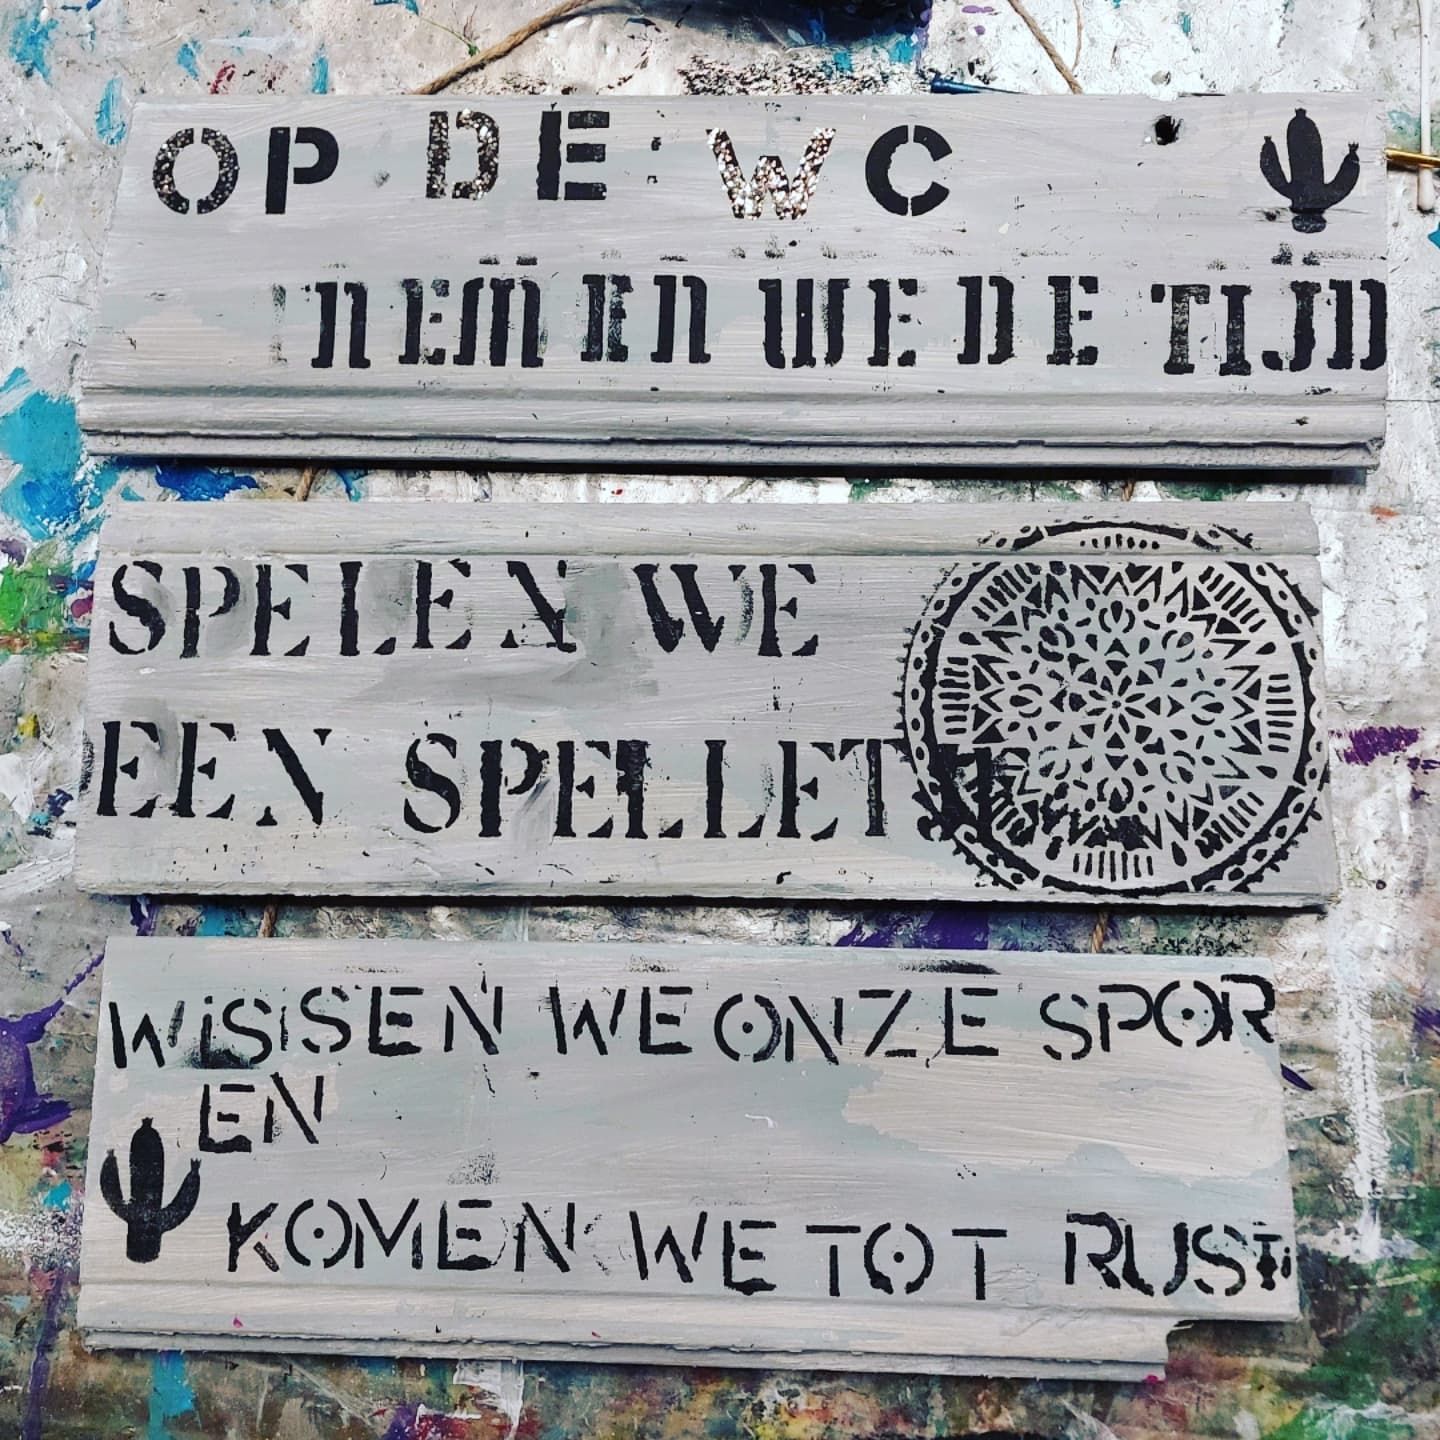 OP DE WC
NEMEN WE DE TIJD
SPELEN WE
EEN SPELLETJE
WISSEN WE ONZE SPOR
EN
KOMEN WE TOT RUST